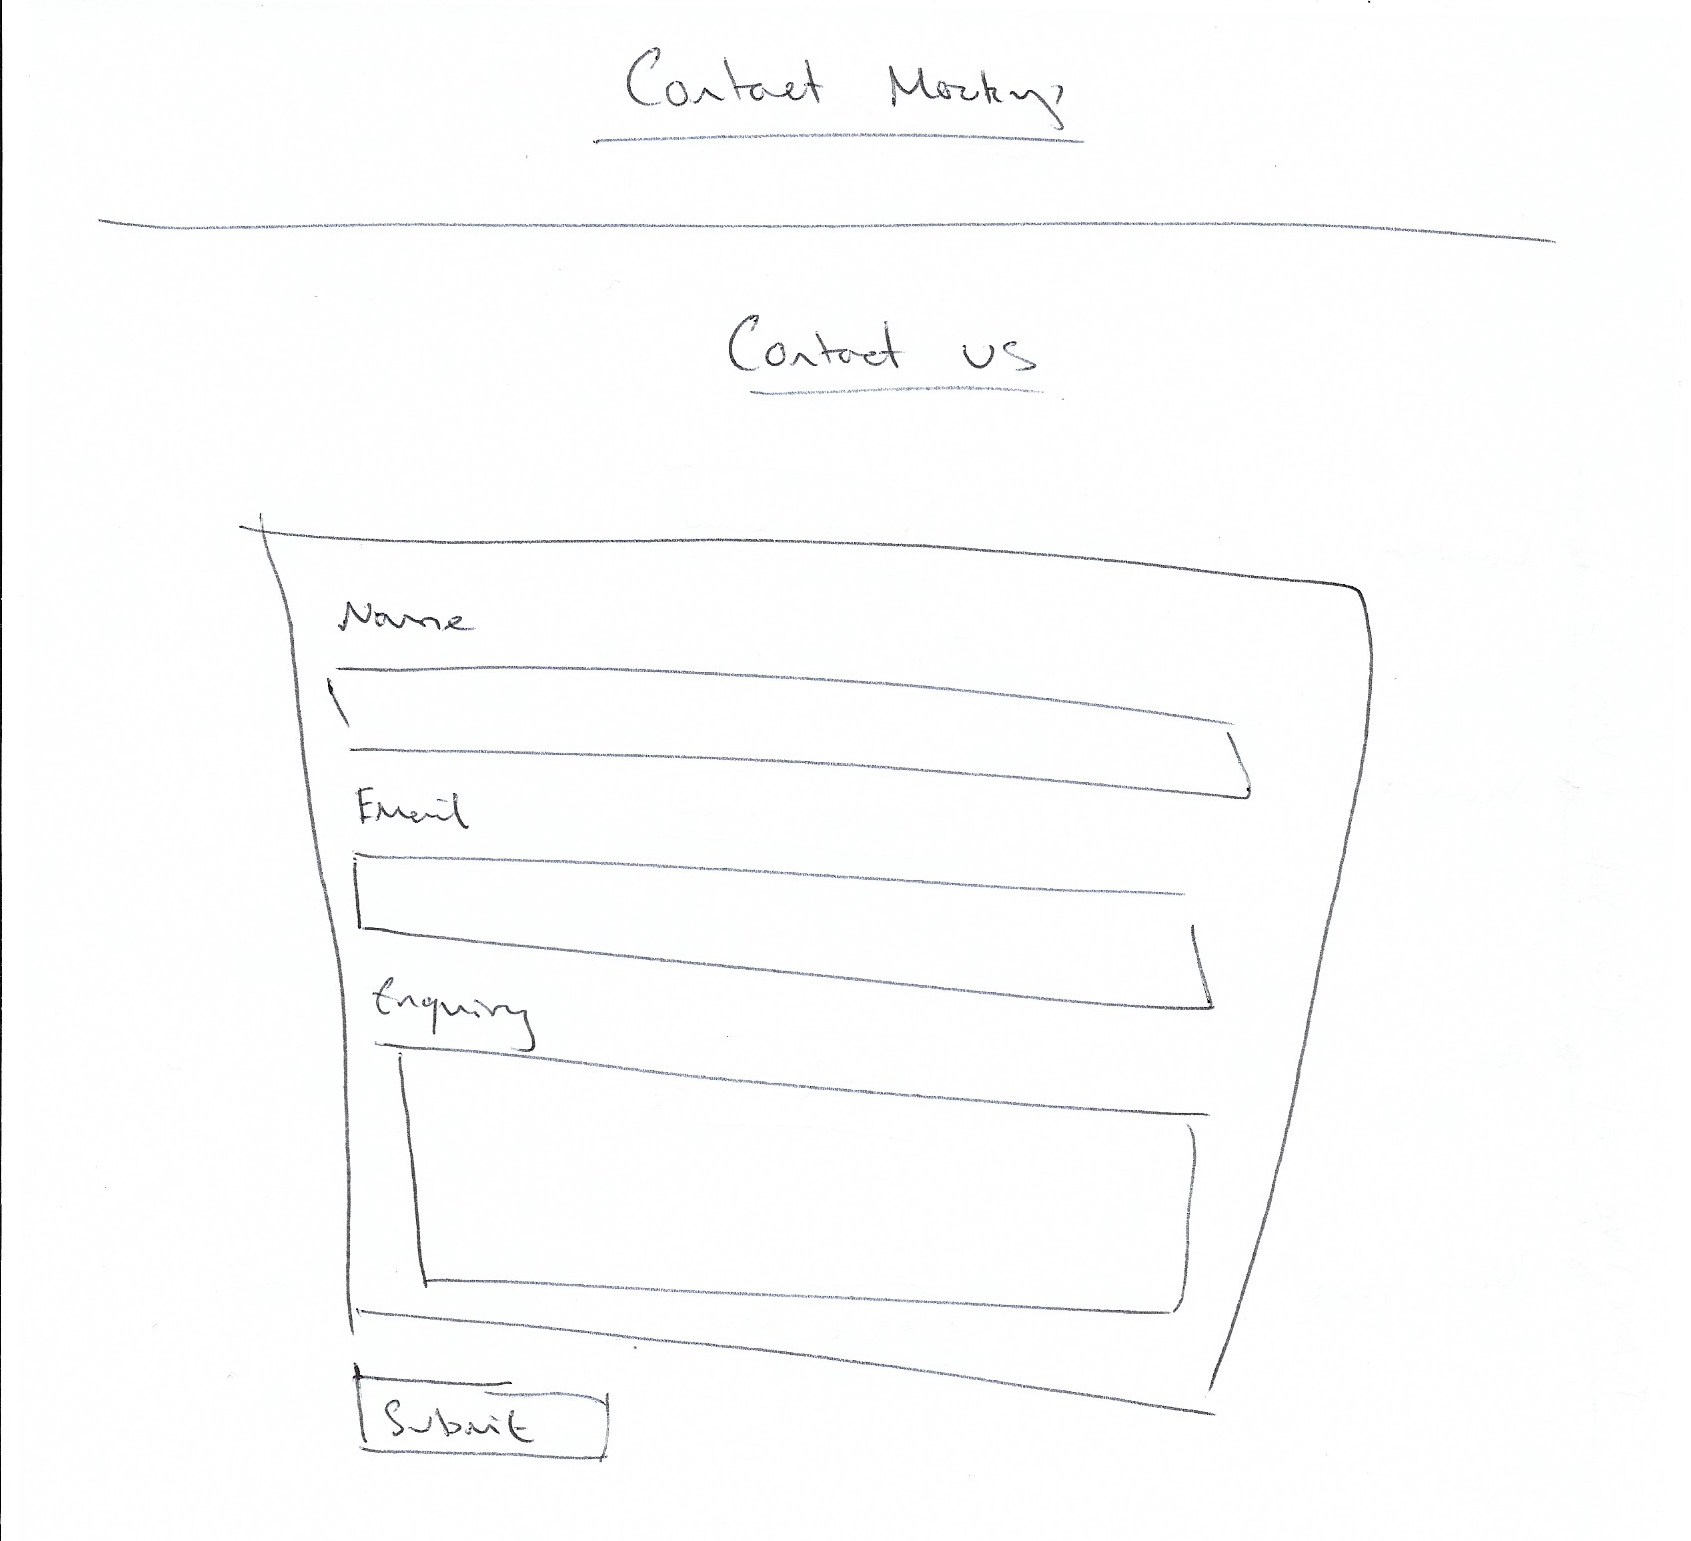 Contact Mockup
Contact us
Name
Email
Enquiry
Submit